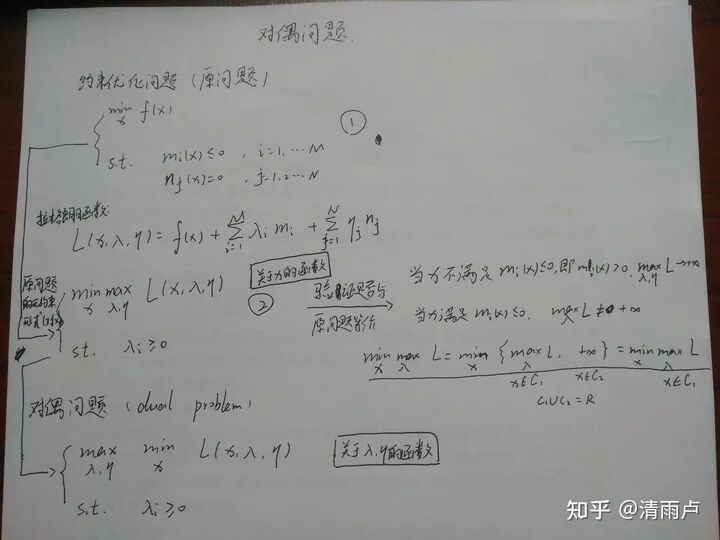 对偶问题.
约束优化问题 (原问题)
min f(x)
x
①
s.t. mi(x)≤0 , i=1,…M
nj(x)=0 , j=1,2…N
拉格朗日函数:
L(x,λ,η)= f(x)+ ∑_{i=1}^{M} λi mi + ∑_{j=1}^{N} ηj nj
原问题
的无约束
形式
min max L(x,λ,η)
x λ,η
关于x的函数
②
s.t. λi≥0
验证是否与
原问题等价
当x不满足 mi(x)≤0, 即 mi(x)>0, max_{λ,η} L→+∞
当x满足 mi(x)≤0, max_λ L≠+∞
min_x max_λ L = min_x {max_λ L, +∞} = min_x max_λ L
x∈C1 x∈C2 x∈C1
C1∪C2=R
对偶问题 (dual problem)
max min L(x,λ,η)
λ,η x
关于λ,η的函数
s.t. λi≥0
知乎 @清雨卢